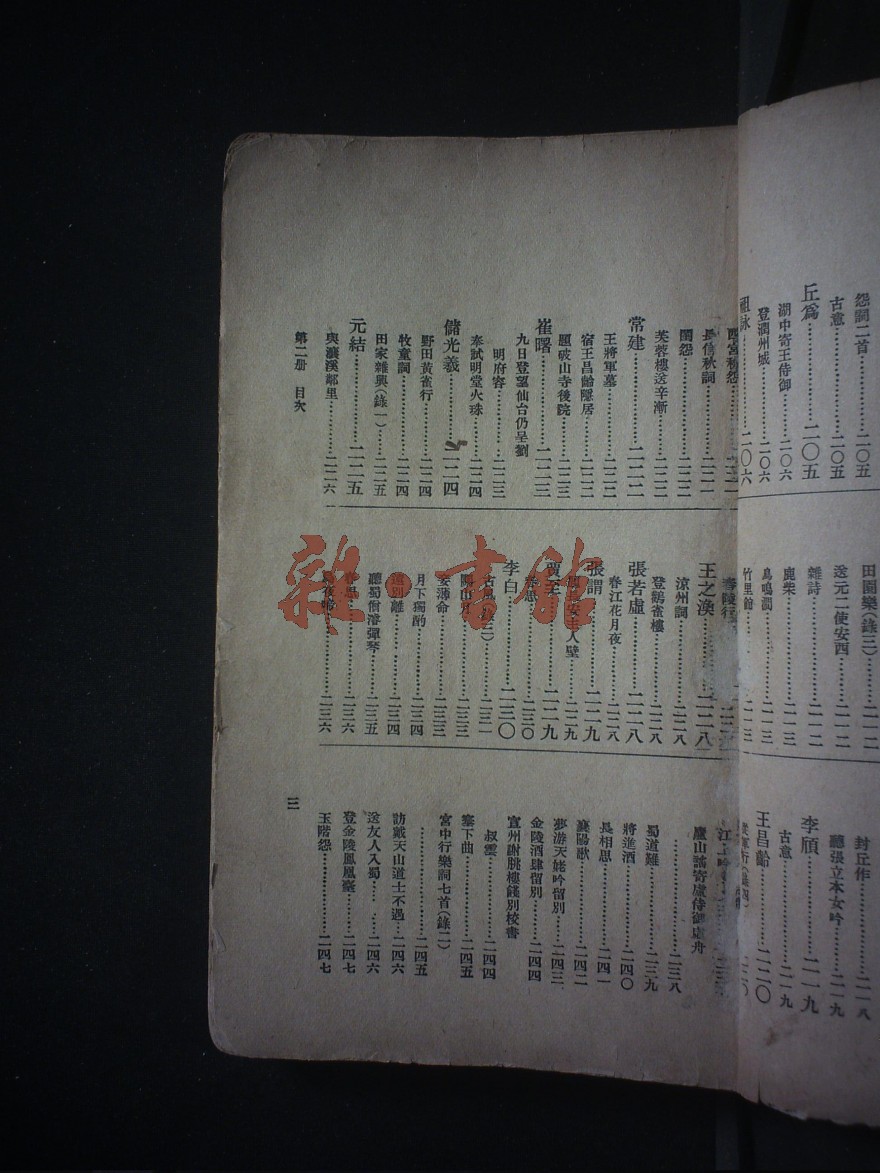 怨詞二首⋯⋯⋯二〇五
古意⋯⋯⋯二〇五
丘爲⋯⋯⋯二〇五
湖中寄王侍御⋯⋯⋯二〇六
登潤州城⋯⋯⋯二〇六
祖詠⋯⋯⋯二〇六
田園樂(錄三)⋯⋯⋯二一二
送元二使安西⋯⋯⋯二一二
雜詩⋯⋯⋯二一二
鹿柴⋯⋯⋯二一三
鳥鳴澗⋯⋯⋯二一三
竹里館⋯⋯⋯二一三
封丘作⋯⋯⋯二一八
聽張立本女吟⋯⋯⋯二一九
李頎⋯⋯⋯二一九
古意⋯⋯⋯二一九
王昌齡⋯⋯⋯二二〇
從軍行(錄四)⋯⋯⋯二二〇
西宮秋怨
長信秋詞⋯⋯⋯二二一
閨怨⋯⋯⋯二二二
芙蓉樓送辛漸⋯⋯⋯二二二
常建⋯⋯⋯二二二
王將軍墓⋯⋯⋯二二二
宿王昌齡隱居⋯⋯⋯二二二
題破山寺後院⋯⋯⋯二二三
崔曙⋯⋯⋯二二三
九日登望仙台仍呈劉
明府容⋯⋯⋯二二三
奉試明堂火珠⋯⋯⋯二二四
儲光羲⋯⋯⋯二二四
野田黃雀行⋯⋯⋯二二四
牧童詞⋯⋯⋯二二四
田家雜興(錄一)⋯⋯⋯二二五
元結⋯⋯⋯二二五
與瀼溪鄰里⋯⋯⋯二二六
舂陵行
王之渙⋯⋯⋯二二八
涼州詞⋯⋯⋯二二八
登鸛雀樓⋯⋯⋯二二八
張若虛⋯⋯⋯二二八
春江花月夜⋯⋯⋯二二八
張謂⋯⋯⋯二二九
主人壁⋯⋯⋯二二九
賈至⋯⋯⋯二二九
春思⋯⋯⋯二三〇
李白⋯⋯⋯二三〇
古風(錄三)⋯⋯⋯二三一
關山月⋯⋯⋯二三三
妾薄命⋯⋯⋯二三三
月下獨酌⋯⋯⋯二三四
遠別離⋯⋯⋯二三四
聽蜀僧濬彈琴⋯⋯⋯二三五
春思⋯⋯⋯二三六
烏夜啼⋯⋯⋯二三六
江上吟
廬山謠寄盧侍御虛舟
⋯⋯⋯二三八
蜀道難⋯⋯⋯二三九
將進酒⋯⋯⋯二四〇
長相思⋯⋯⋯二四一
襄陽歌⋯⋯⋯二四二
夢游天姥吟留別⋯⋯⋯二四三
金陵酒肆留別⋯⋯⋯二四四
宣州謝朓樓餞別校書
叔雲⋯⋯⋯二四四
塞下曲⋯⋯⋯二四五
宮中行樂詞七首(錄二)
⋯⋯⋯二四五
訪戴天山道士不遇⋯⋯⋯二四六
送友人入蜀⋯⋯⋯二四六
登金陵鳳凰臺⋯⋯⋯二四七
玉階怨⋯⋯⋯二四七
第二册 目次
三
雜·書館